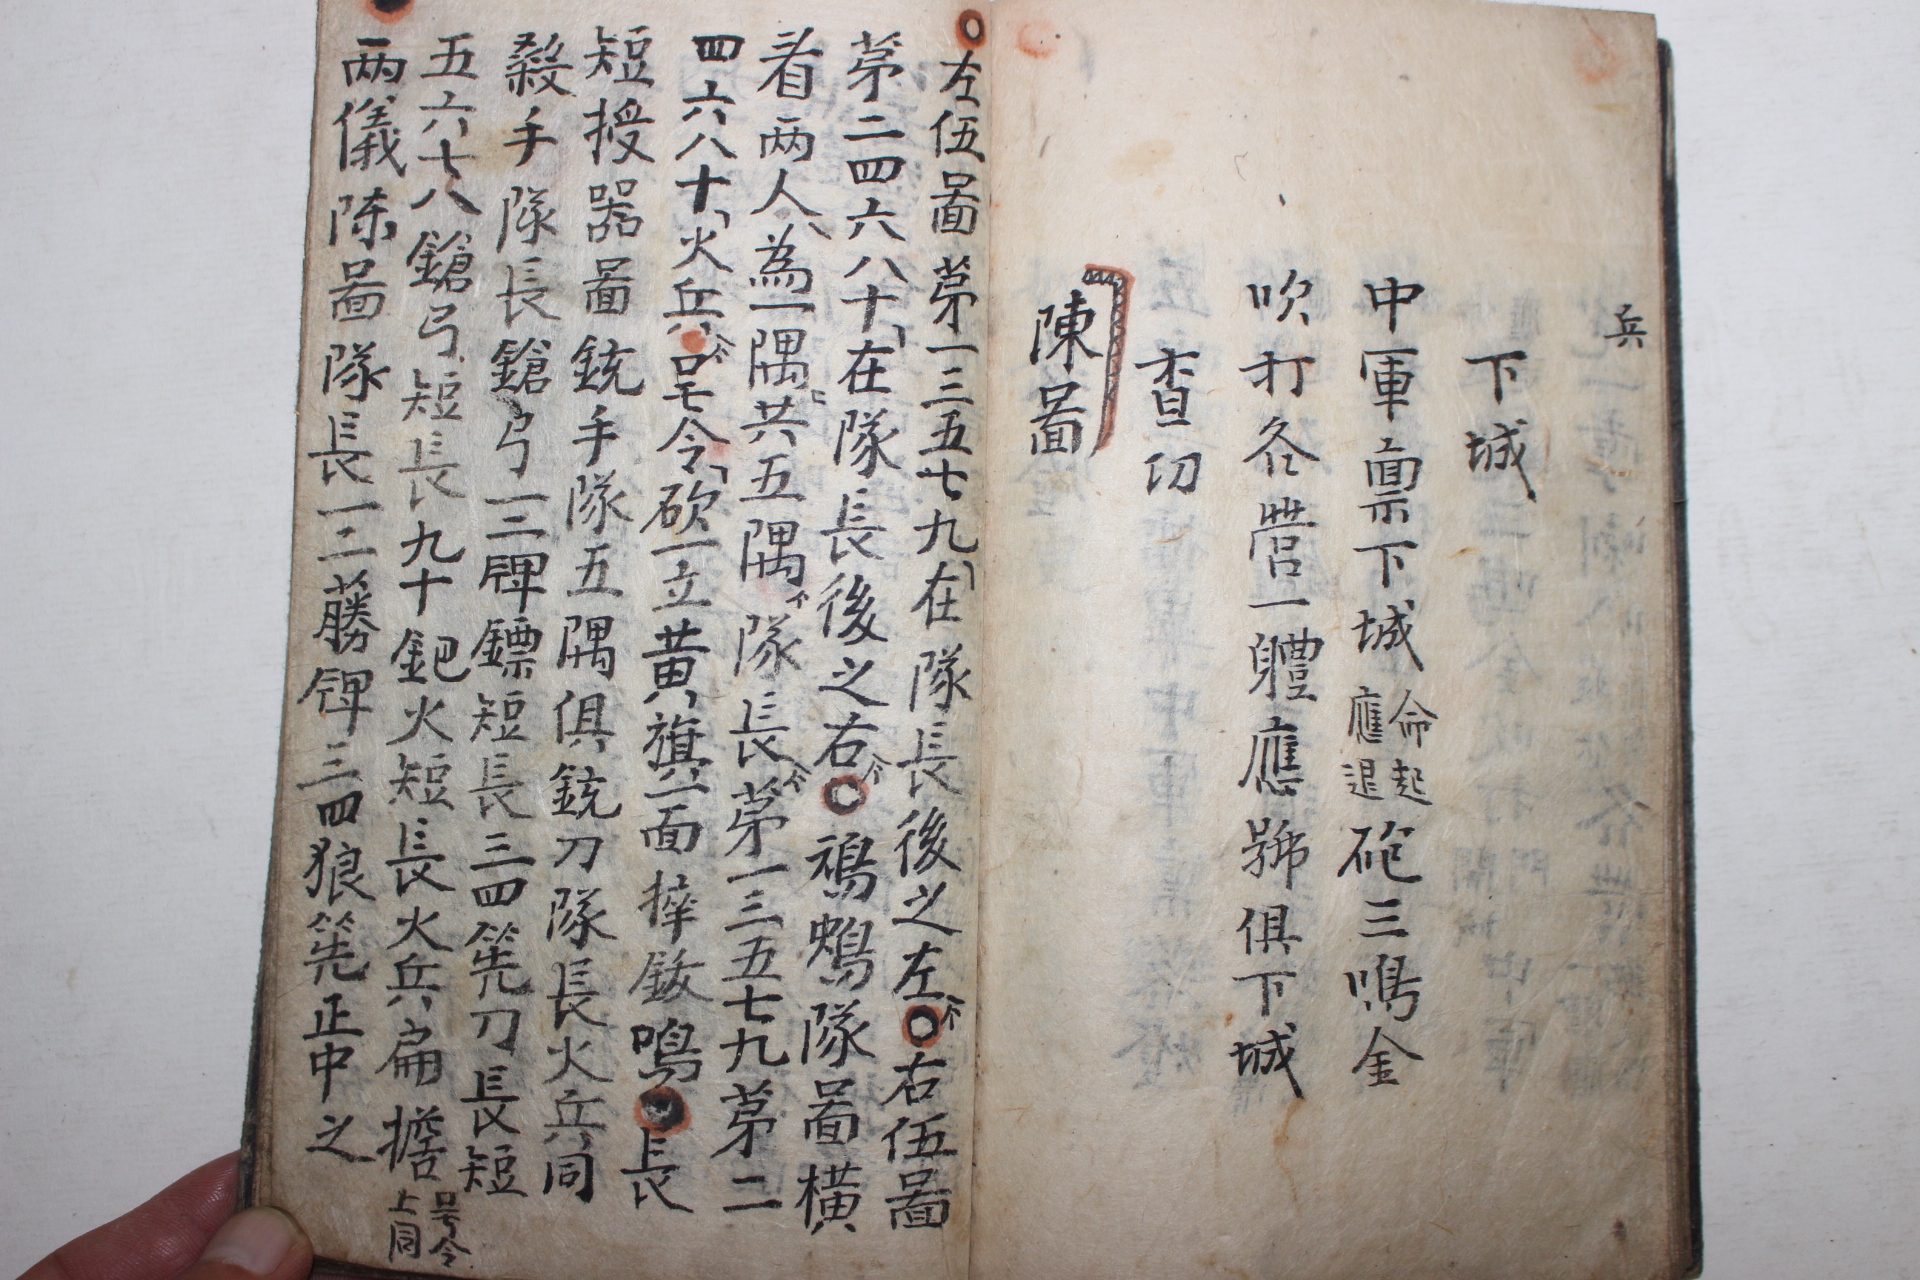 兵
下城
中軍禀下城命起應退砲三鳴金
吹打各營一體應號俱下城
查功
陳圖
○左伍圖苐一三五七九在隊長後之左○右伍圖
苐二四六八十在隊長後之右○鴉鶏隊圖橫
看兩人為一隅共五隅隊長苐一三五七九苐二
四六八十火兵号令砍一立黄旗一面摔鈸鳴○長
短授器圖銃手隊五隅俱銃刀隊長火兵同
殺手隊長鎗弓一二牌鏢短長三四筅刀長短
五六七八鎗弓短長九十鈀火短長火兵扁擔号令上同
兩儀陳圖隊長一二藤牌三四狼筅正中之